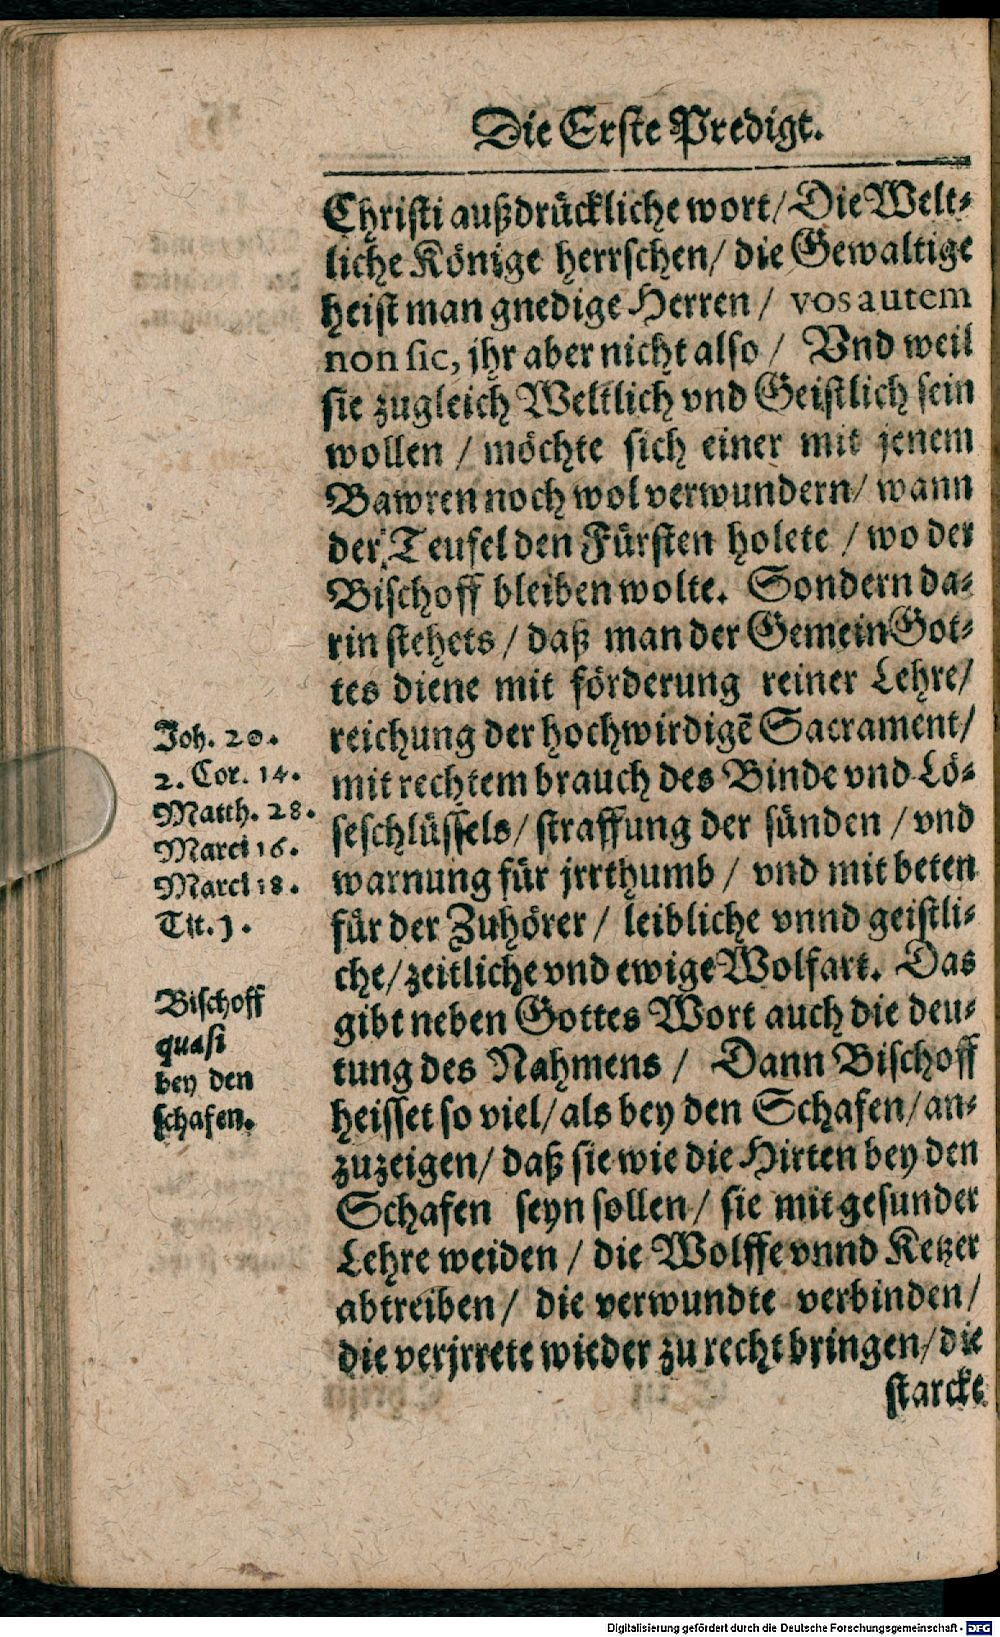 Die Erste Predigt.
Christi außdrückliche wort/ Die Welt-
liche Könige herrschen/ die Gewaltige
heist man gnedige Herren / vos autem
non sic, jhr aber nicht also / Vnd weil
sie zugleich Weltlich vnd Geistlich sein
wollen / möchte sich einer mit jenem
Bawren noch wol verwundern/ wann
der Teufel den Fürsten holete / wo der
Bischoff bleiben wolte. Sondern da-
rin stehets / daß man der Gemein Got-
tes diene mit förderung reiner Lehre/
reichung der hochwirdigẽ Sacrament/
mit rechtem brauch des Binde vnd Lö-
seschlüssels/ straffung der sünden / vnd
warnung für jrrthumb / vnd mit beten
für der Zuhörer / leibliche vnnd geistli-
che/ zeitliche vnd ewige Wolfart. Das
gibt neben Gottes Wort auch die deu-
tung des Nahmens / Dann Bischoff
heisset so viel/ als bey den Schafen/ an-
zuzeigen/ daß sie wie die Hirten bey den
Schafen seyn sollen/ sie mit gesunder
Lehre weiden / die Wolffe vnnd Ketzer
abtreiben/ die verwundte verbinden/
die verjrrete wieder zu recht bringen/ die
starcke
Joh. 20.
2. Cor. 14.
Matth. 28.
Marci 16.
Marci 18.
Tit. 1.
Bischoff
quasi
bey den
schafen.
Digitalisierung gefördert durch die Deutsche Forschungsgemeinschaft - DFG